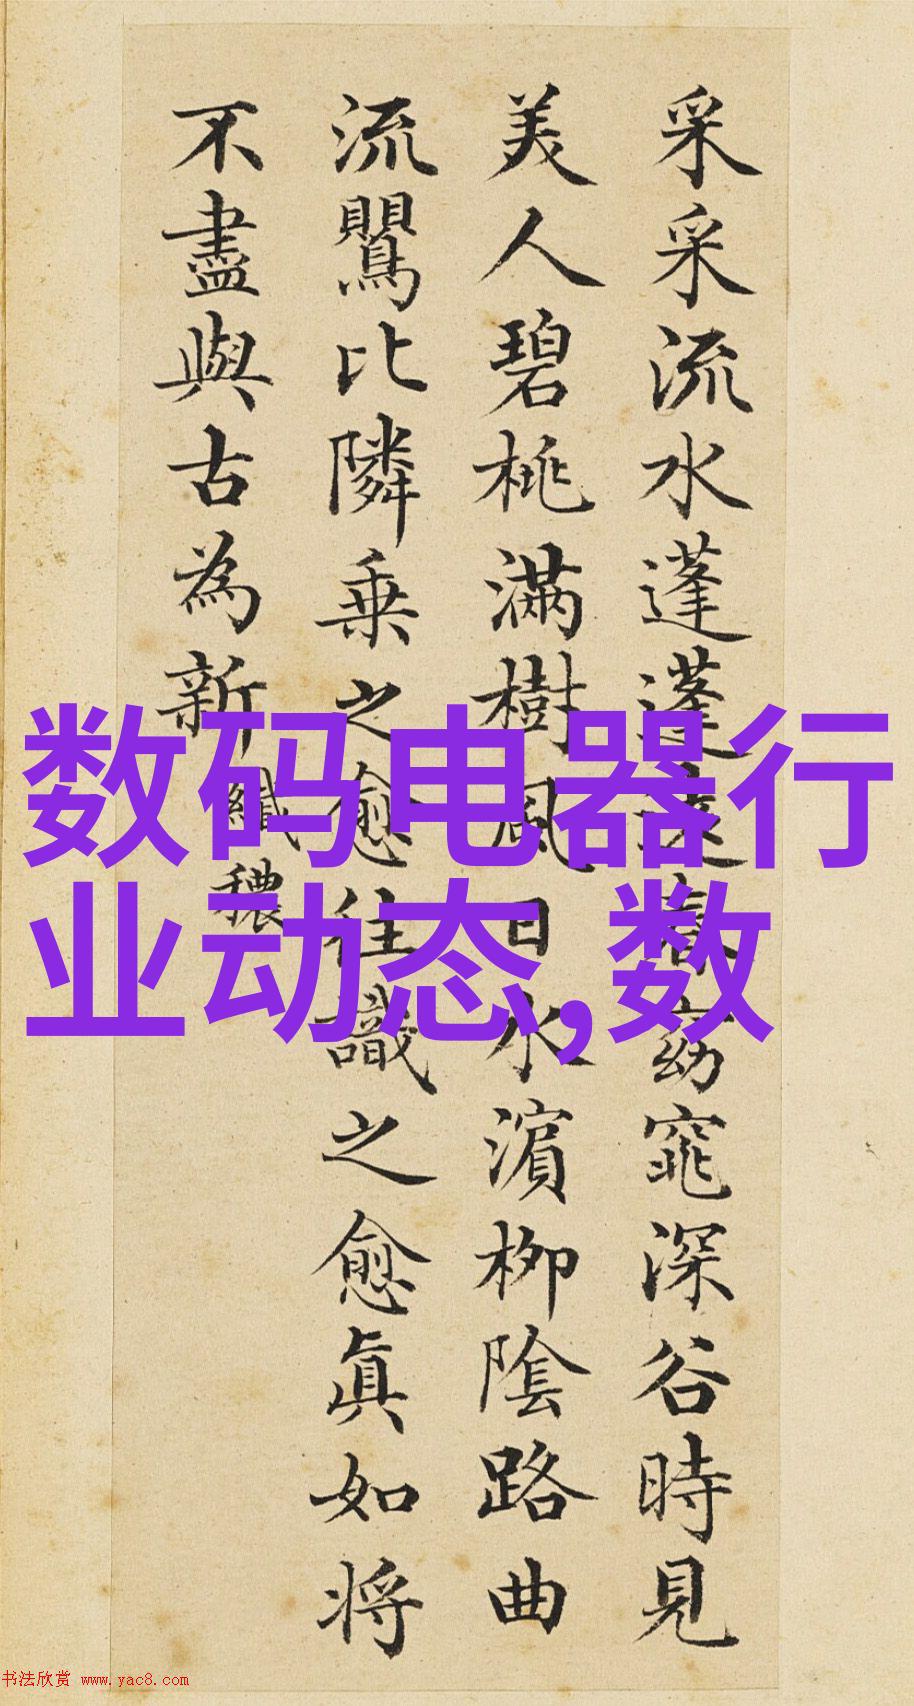 采采流水蓬蓬遠春窈窕深谷時見
美人碧桃滿樹風日水濵柳隂路曲
流鸎比隣乗之愈往識之愈眞如将
不盡與古為新
纖穠
数码电器行
业动态,数
书法欣赏 www.yac8.com